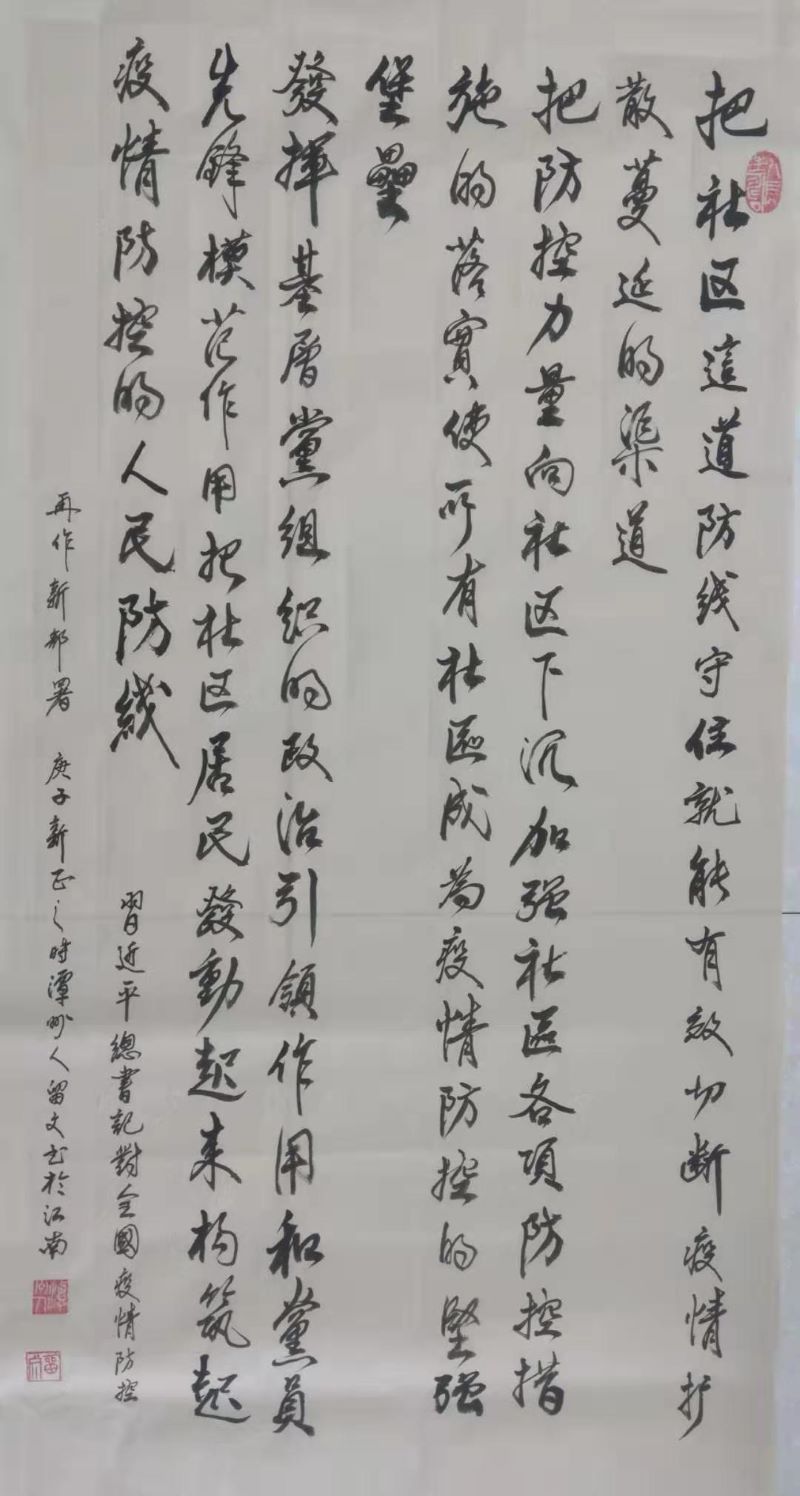 把社区這道防线守住就能有效切断疫情扩
散蔓延的渠道
把防控力量向社区下沉加强社区各项防控措
施的落實使所有社區成為疫情防控的堅强
堡壘
發揮基層黨組织的政治引領作用和黨員
先鋒模范作用把社区居民發動起来构筑起
疫情防控的人民防线
習近平總書記對全國疫情防控
再作新部署 庚子新正之时潭州人留文书於江南